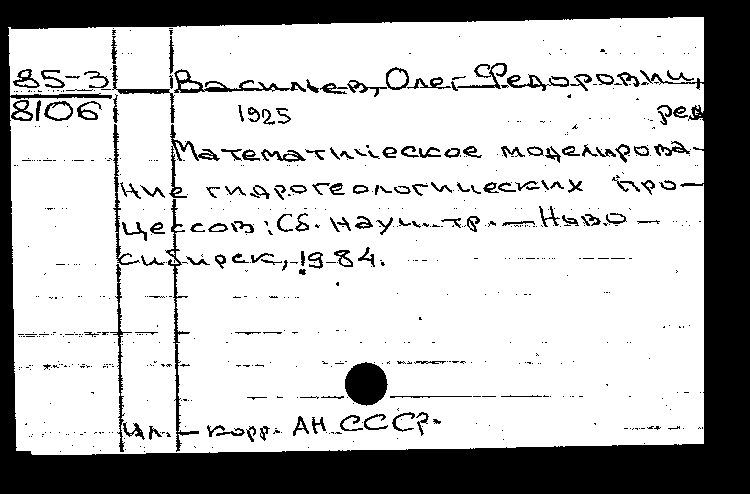 85-3 Васильев, Олег Федорович,
8106 1925 ред
Математическое моделирова-
ние гидрогеологических про-
цессов: Сб. науч. тр. — Ново-
сибирск, 1984.
Чл. - корр. АН СССР.